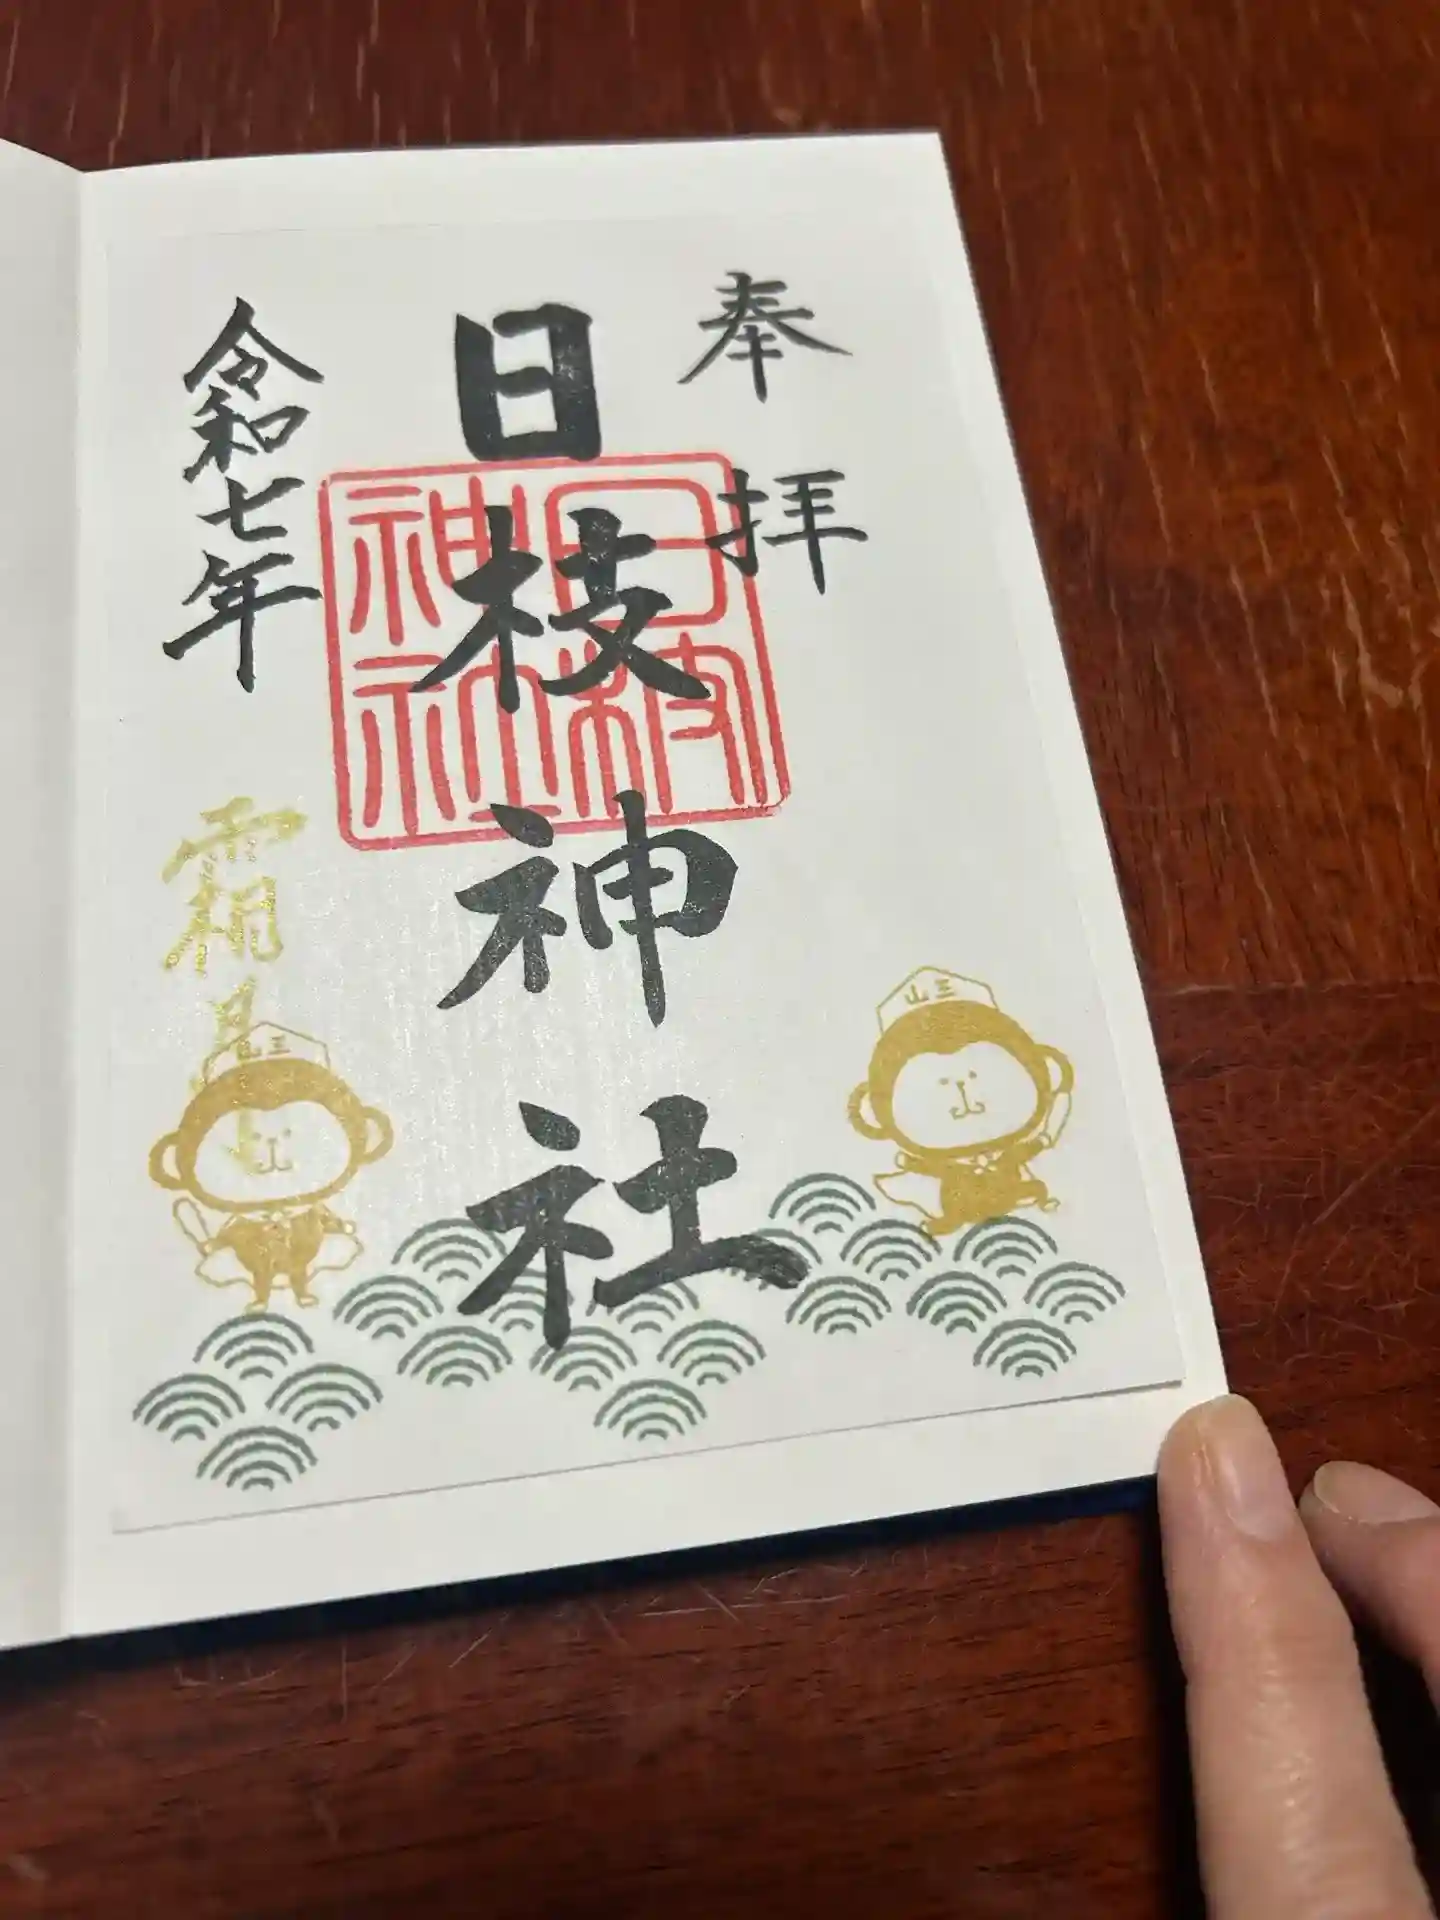 奉拝
日枝神社
日枝神社
令和七年
霜月
三山
三山